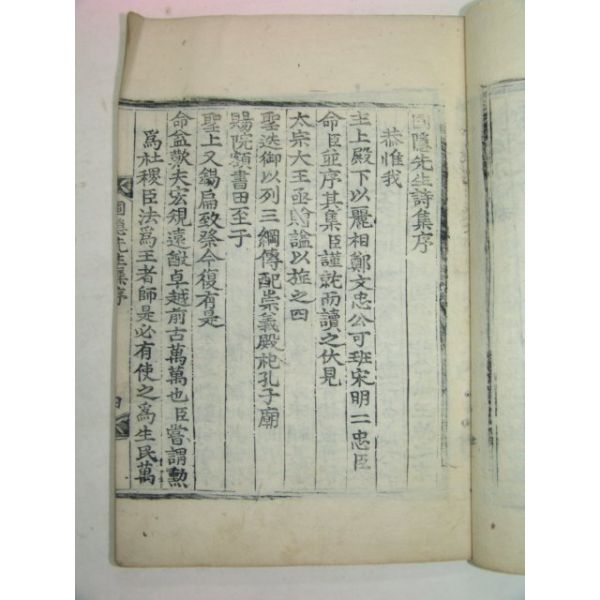 圃隱先生詩集序
恭惟我
主上殿下以麗相鄭文忠公可班宋明二忠臣
命臣並序其集臣謹就而讀之伏見
太宗大王亟貤諡以旌之四
聖迭御以列三綱傳配崇義殿祀孔子廟
賜院額書田至于
聖上又錫扁致祭今復有是
命盆歎夫宏規遠猷卓越前古萬萬也臣嘗謂勲
爲社稷臣法爲王者師是必有使之爲生民萬
圃隱先生集序
四